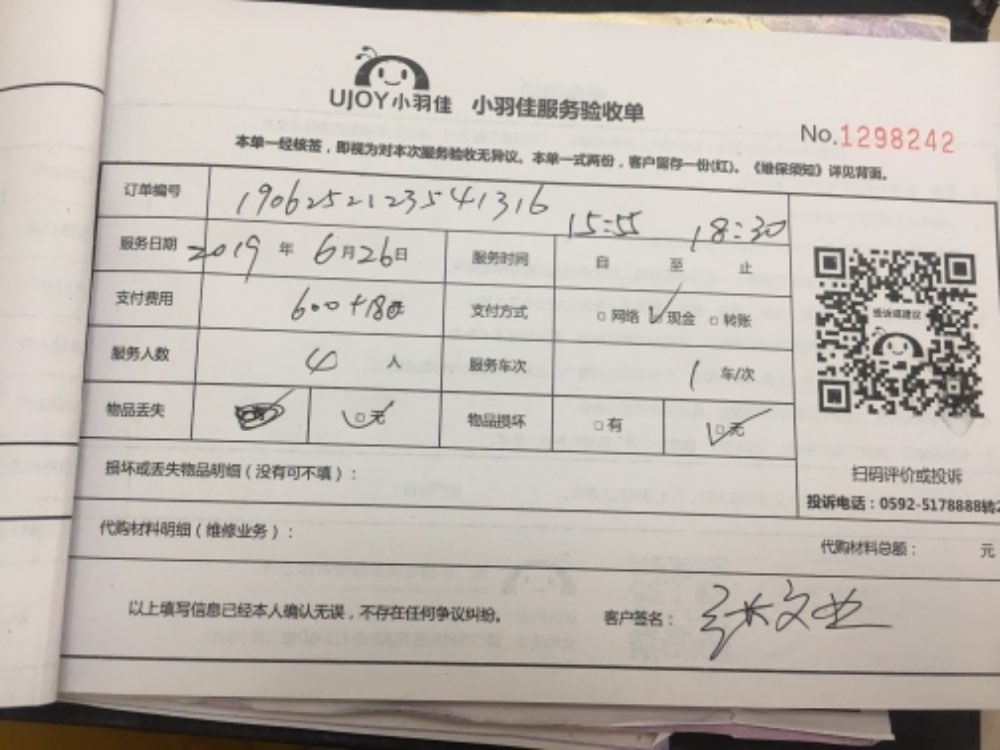 UJOY小羽佳 小羽佳服务验收单
No.1298242
本单一经核签，即视为对本次服务验收无异议。本单一式两份，客户留存一份(红)。《维保须知》详见背面。
订单编号 190625212354131​6
服务日期 2019 年 6月26日 服务时间 15:55 自 至 18:30 止
支付费用 600+180 支付方式 □网络 □现金 □转账
服务人数 4 人 服务车次 1 车/次
物品丢失 □无 物品损坏 □有 □无
投诉或建议
扫码评价或投诉
投诉电话：0592-5178888转2
损坏或丢失物品明细（没有可不填）：
代购材料明细（维修业务）： 代购材料总额： 元
以上填写信息已经本人确认无误，不存在任何争议纠纷。 客户签名： 张文业